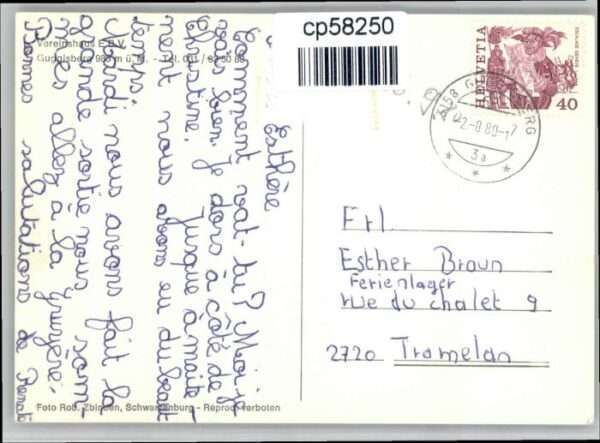 cp58250
HELVETIA
40
3158 GUGGISBERG
-2.-8.80-17
3a
Vereinshaus E.G.V.
Guggisberg 983 m ü. M. - Tel. 031 / 93 50 83
Esthère
Comment vat-tu? Moi je
vais bien. je dors à côté de
Christine. Jusque à maite
nent nous avons eu du beau
temps.
Jeudi nous avons fait la
grande sortie nous somm-
mes allez à la gruyère.
Bonnes salutations de
Frl.
Esther Braun
Ferienlager
rue du chalet 9
2720 Tramelan
Foto Rob. Zbinden, Schwarzenburg - Reprod. verboten